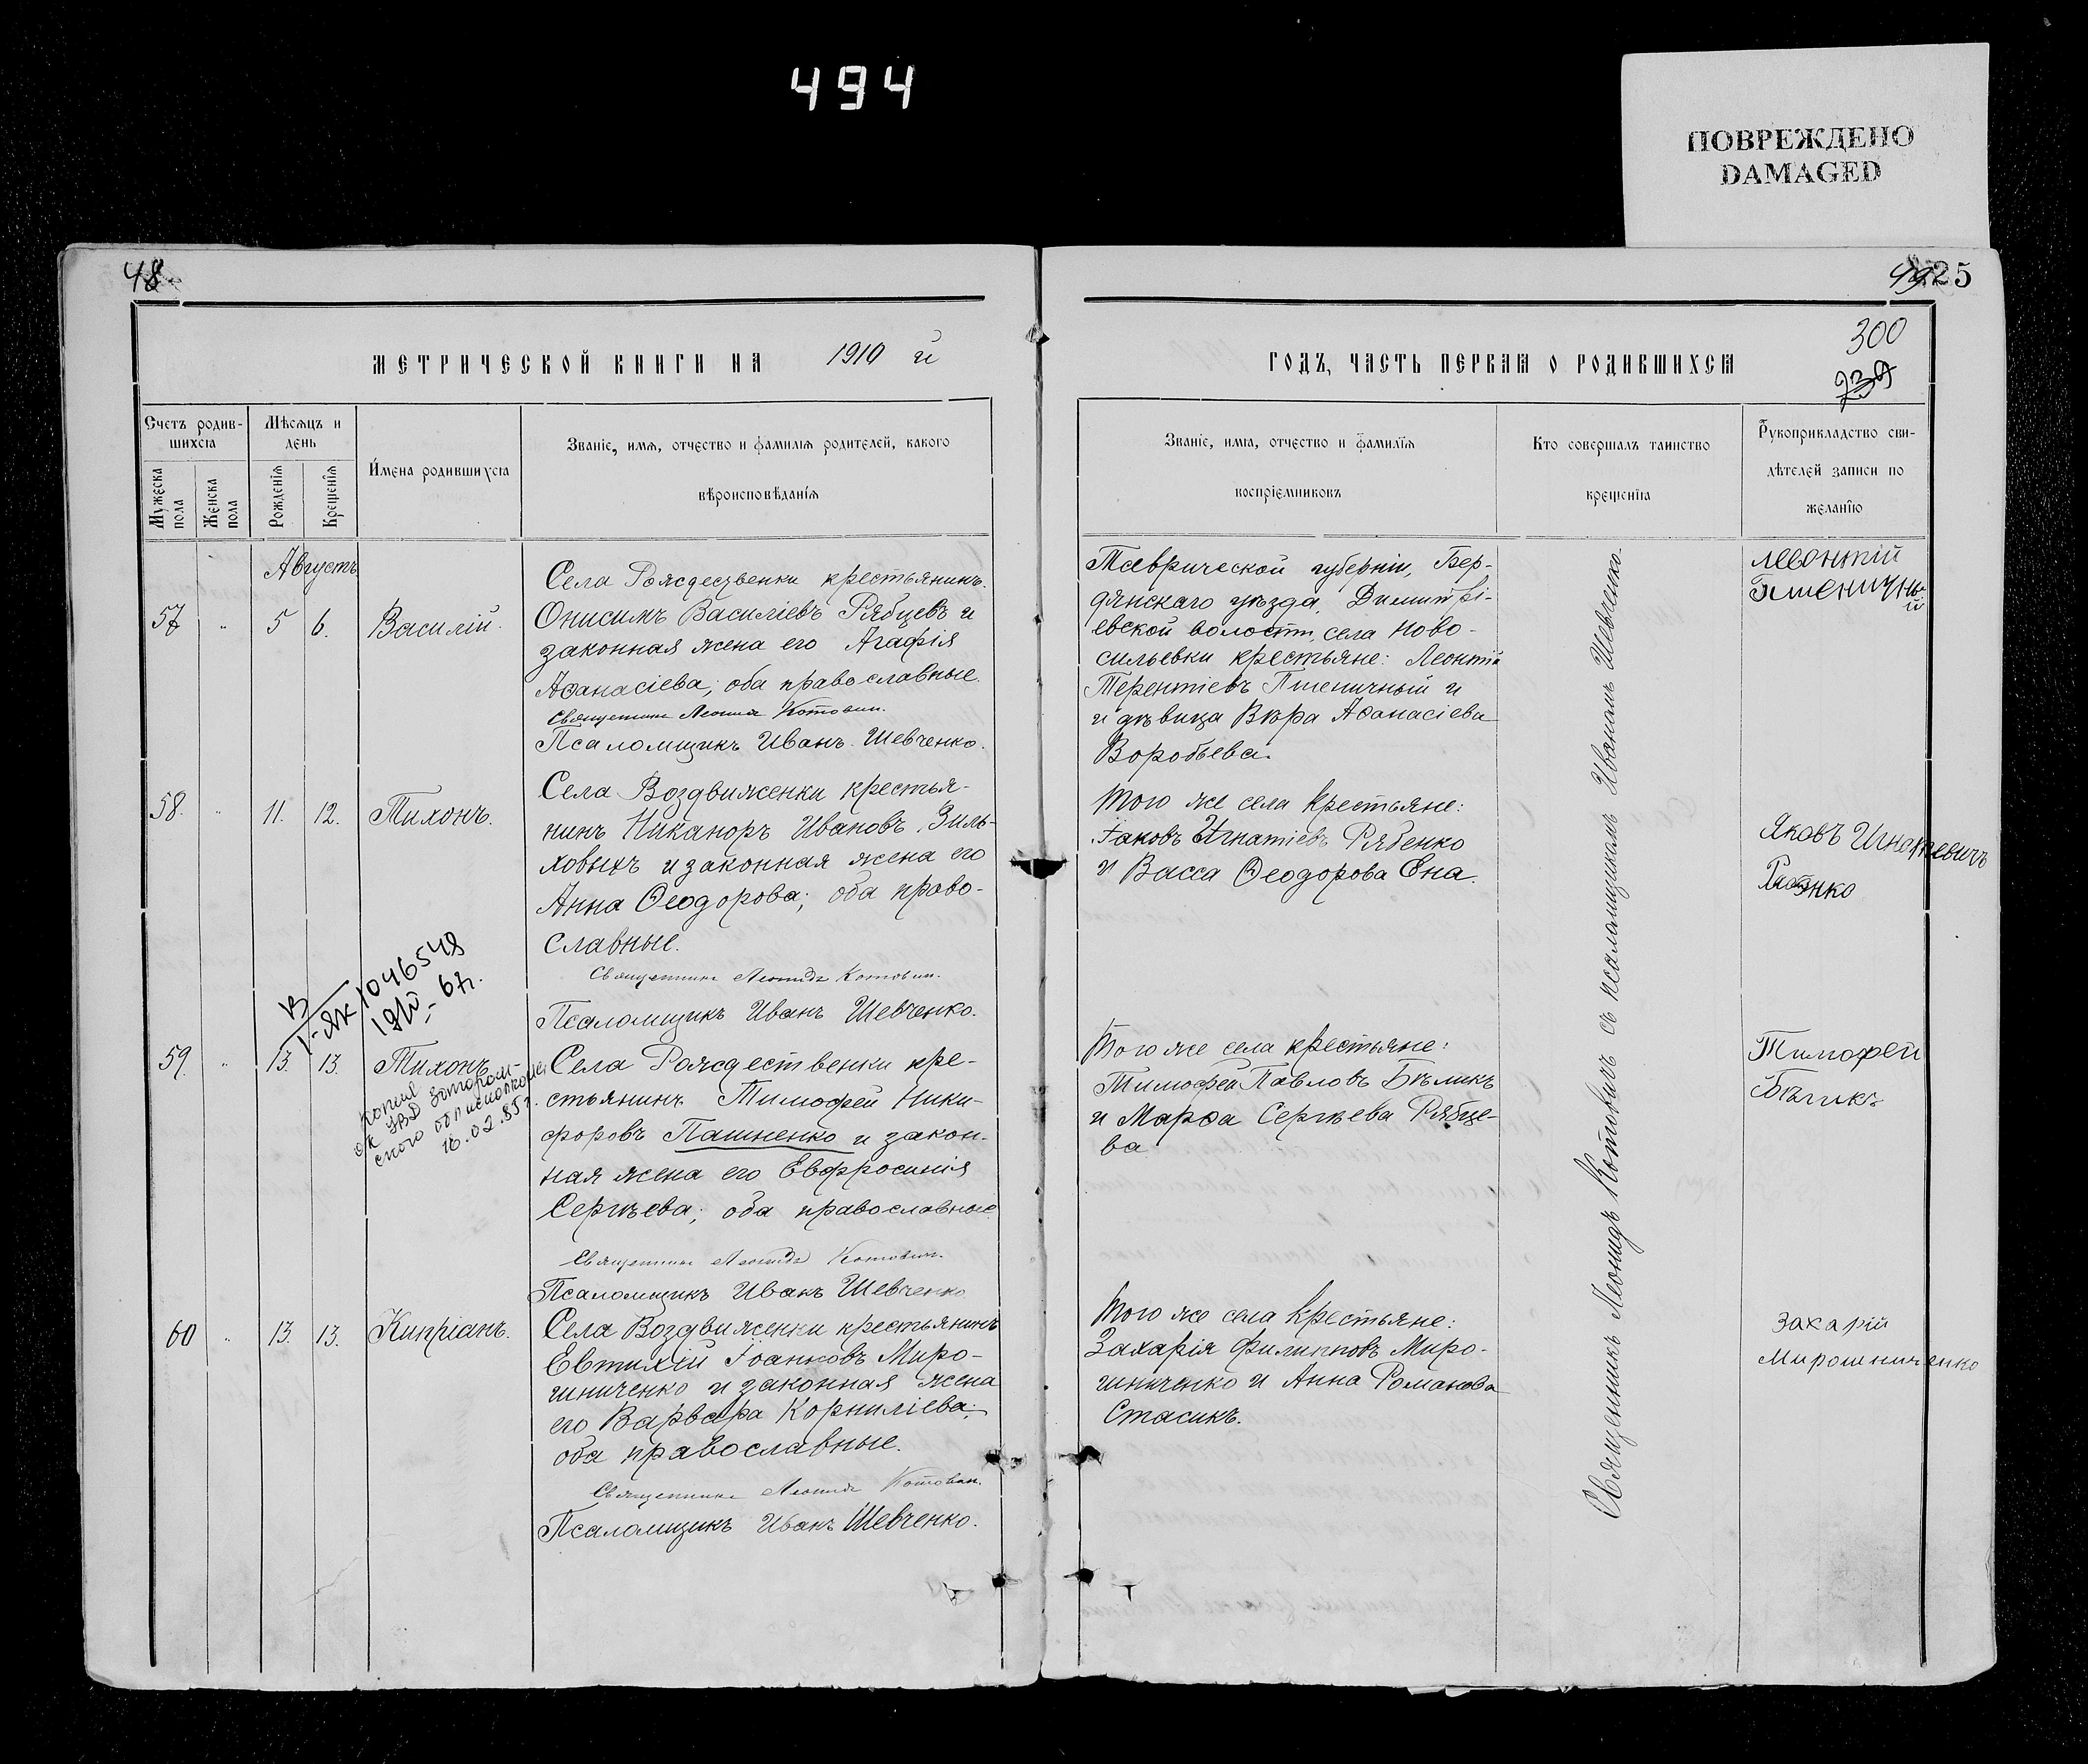 494
ПОВРЕЖДЕНО
DAMAGED
48
49
25
МЕТРИЧЕСКОЙ КНИГИ НА 1910 й
ГОДЪ, ЧАСТЬ ПЕРВАЯ О РОДИВШИХСЯ
300
Счетъ родив-
шихся
Мужеска
пола
Женска
пола
Мѣсяцъ и
день
Рожденія
Крещенія
Имена родившихся
Званіе, имя, отчество и фамилія родителей, какого
вѣроисповѣданія
Званіе, имя, отчество и фамилія
воспріемниковъ
Кто совершалъ таинство
крещенія
Рукоприкладство сви-
дѣтелей записи по
желанію
Августъ
57 " 5 6. Василій.
Села Рождественки крестьянинъ
Онисимъ Василіевъ Рябцевъ и
законная жена его Агафія
Аѳанасіева; оба православные.
Священникъ Леонидъ Котович.
Псаломщикъ Иванъ Шевченко.
Таврической губерніи, Бер-
дянскаго уѣзда, Димитрі-
евской волости, села Ново-
сильевки крестьяне: Леонтій
Терентіевъ Пшеничный и
и дѣвица Вѣра Аѳанасіева
Воробьева.
Леонтій
Пшеничны-
й
58. " 11. 12. Тихонъ.
Села Воздвиженки крестья-
нинъ Никаноръ Ивановъ Зиль-
ховыхъ и законная жена его
Анна Ѳеодорова; оба право-
славные.
Священникъ Леонидъ Котович.
Псаломщикъ Иванъ Шевченко.
Того же села крестьяне:
Іаковъ Игнатіевъ Рябенко
и Васса Ѳеодорова Ена.
Яковъ Игнатевичъ
1-ЯК 1046548
59. " 13. 13. Тихонъ
16.02.85г.
Села Рождественки кре-
стьянинъ Тимофей Ники-
форовъ Пашненко и закон-
ная жена его Евфросинія
Сергѣева; оба православные
Священникъ Леонидъ Котович.
Псаломщикъ Иванъ Шевченко
Того же села крестьяне:
Тимофей Павловъ Бѣликъ
и Марѳа Сергѣева Рябце-
ва
Тимофей
Бѣликъ
60 " 13. 13. Кипріанъ.
Села Воздвиженки крестьянинъ
Евтихій Іоанновъ Миро-
шниченко и законная жена
его Варвара Корниліева;
оба православные.
Священникъ Леонидъ Котович.
Псаломщикъ Иванъ Шевченко.
Того же села крестьяне:
Захарія Филипповъ Миро-
шниченко и Анна Романова
Стасикъ.
Захарій
Мирошениченко
Священникъ Леонидъ Котовичъ съ псаломщикомъ Иваномъ Шевченко.